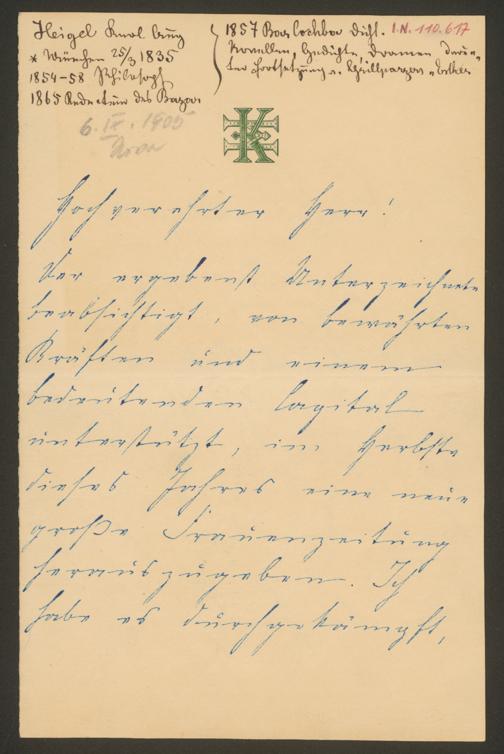 Heigel Karl Aug
* München 25/3 1835
1854-58 Philosoph
1865 Redacteur des Bazar
1857 Dichl.
Novellen, Gedichte, Dramen
Fortsetzung v. Grillparzers „Esther“
I.N. 110.617
6. IX. 1905
K
Hochverehrter Herr!
Der ergebenst Unterzeichnete
beabsichtigt, von bewährten
Kräften und einem
bedeutenden Capital
unterstützt, im Herbste
dieses Jahres eine neue
große Frauenzeitung
herauszugeben. Ich
habe es durchgekämpft,